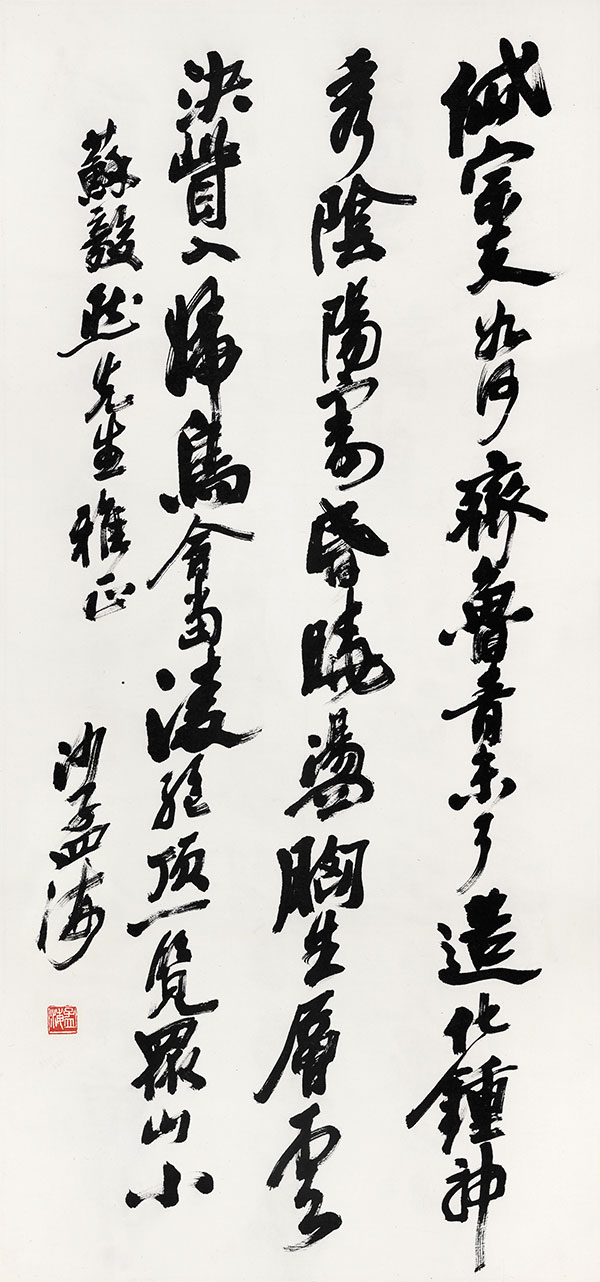 岱宗夫如何齊魯青未了造化鍾神
秀陰陽割昏曉盪胸生層雲
決眥入歸鳥會當凌絕頂一覽眾山小
蘇毅然先生雅正
沙孟海
孟海